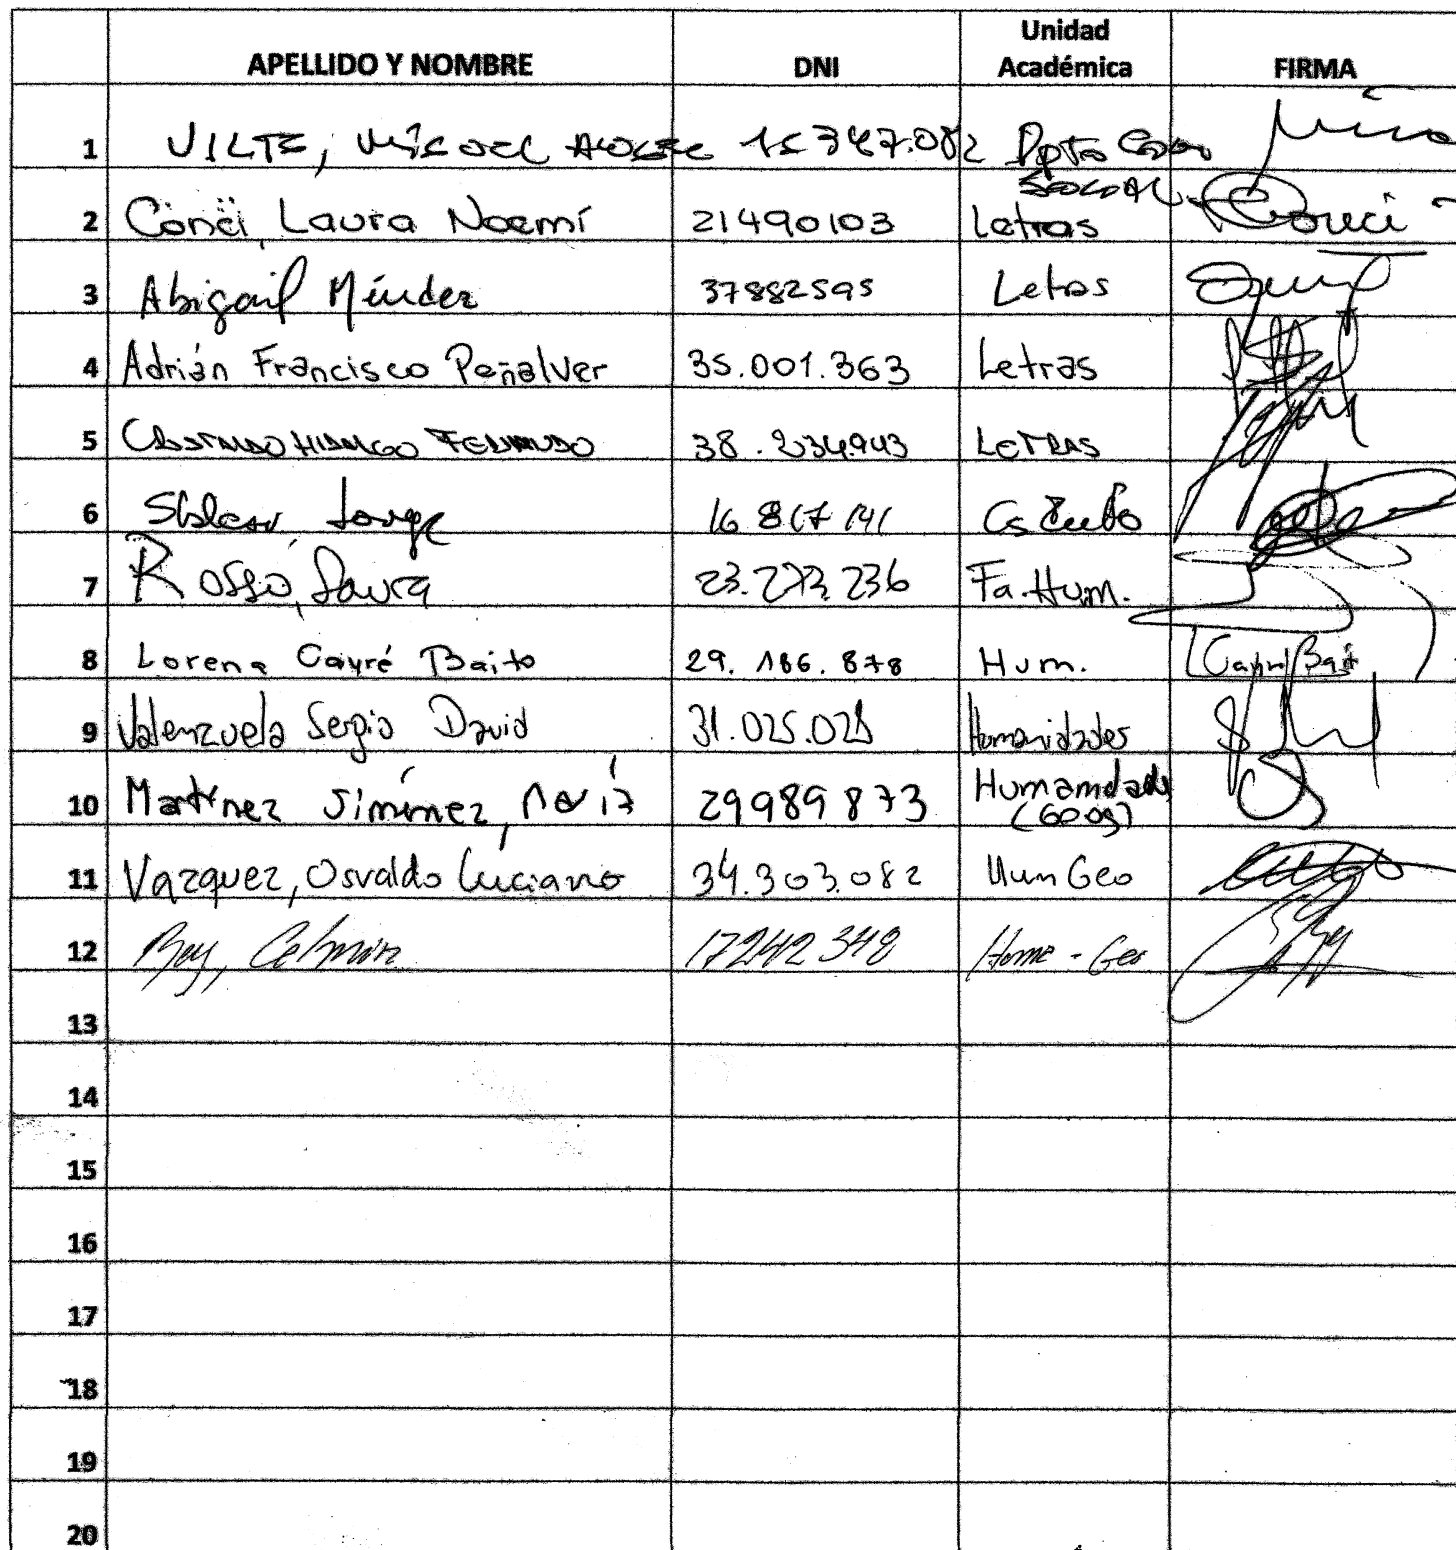 APELLIDO Y NOMBRE DNI Unidad Académica FIRMA
1 VILTE, 347.082 Dpto
2 Conci, Laura Noemí 21490103 Letras Conci
3 Abigail Méndez 37882595 Letras
4 Adrián Francisco Peñalver 35.001.363 Letras
5 HIDALGO FERNANDO 38.234.943 LETRAS
6 Jorge 16
7 Rosso, Laura 23.273.236 Fa. Hum.
8 Lorena Cayré Baito 29.186.878 Hum.
9 Valenzuela Sergio David 31.025.028 Humanidades
10 Martínez Jiménez, María 29989873 Humanidades
(Geog)
11 Vazquez, Osvaldo Luciano 34.303.082 Hum Geo
12 Rey, Celmira 17242348
13
14
15
16
17
18
19
20